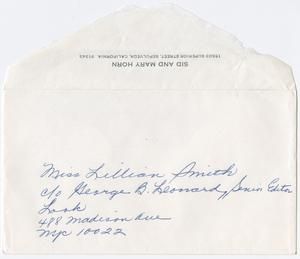 SID AND MARY HORN
15920 SUPERIOR STREET, SEPULVEDA, CALIFORNIA 91343
Miss Lillian Smith
c/o George B. Leonard, Senior Editor
Look
488 Madison Ave
NYC 10022